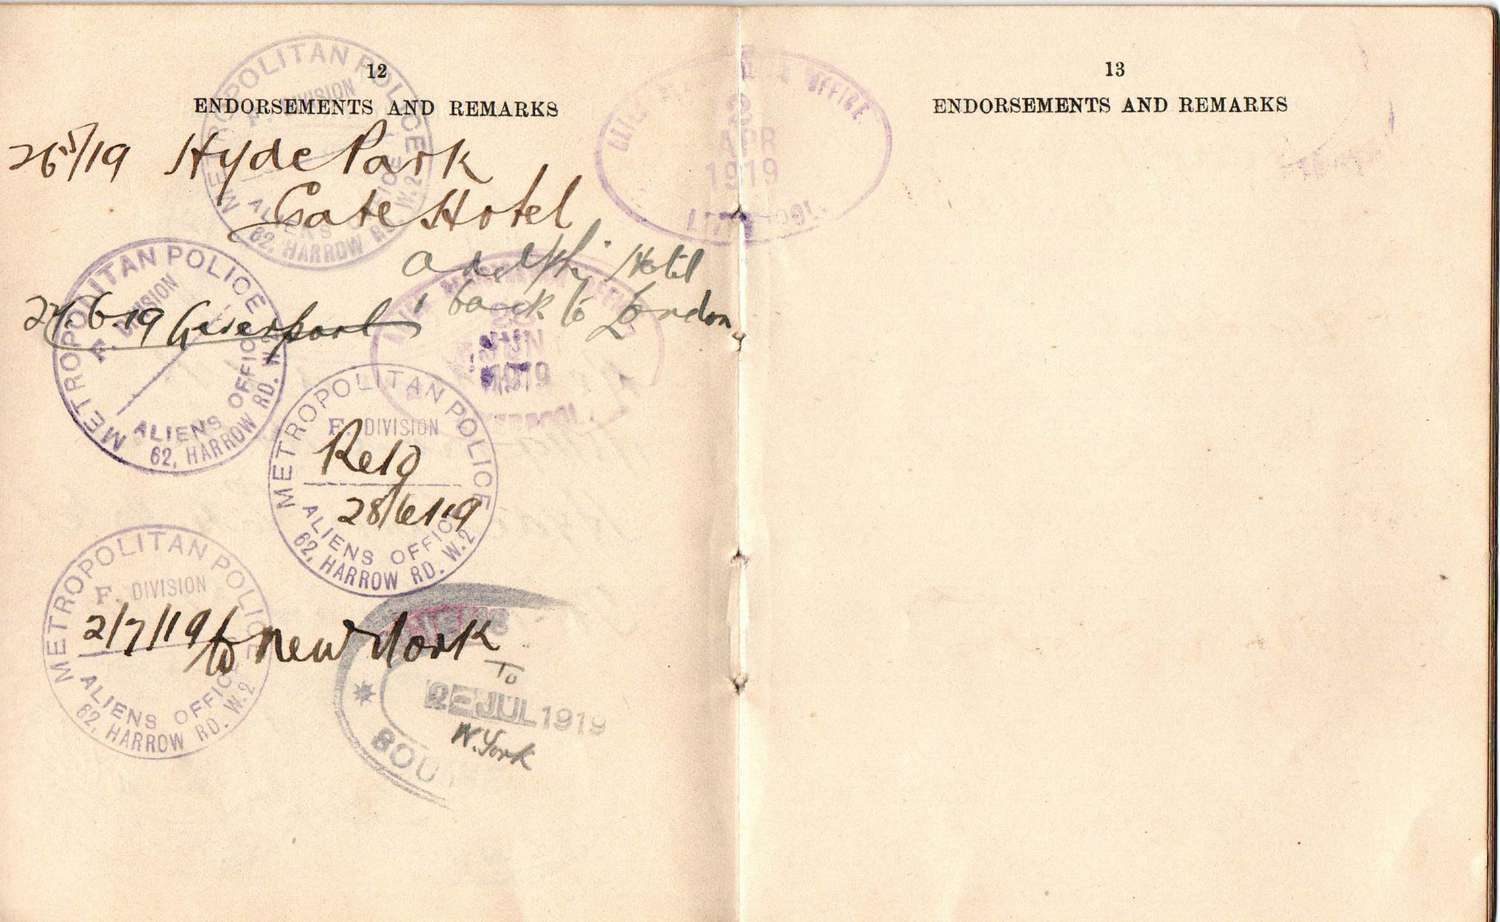 12
ENDORSEMENTS AND REMARKS
METROPOLITAN POLICE
DIVISION
ALIENS OFFICE
62, HARROW RD. W.2
26/5/19 Hyde Park
Gate Hotel
Adelphi Hotel
back to London
24.6.19 Liverpool
METROPOLITAN POLICE
F. DIVISION
ALIENS OFFICE
62, HARROW RD. W.2
JUN
1919
METROPOLITAN POLICE
F. DIVISION
28/6/19
ALIENS OFFICE
62, HARROW RD. W.2
METROPOLITAN POLICE
F. DIVISION
2/7/19 to New York
ALIENS OFFICE
62, HARROW RD. W.2
To
JUL 1919
N. York
SOU
OFFICE
2
APR
1919
13
ENDORSEMENTS AND REMARKS